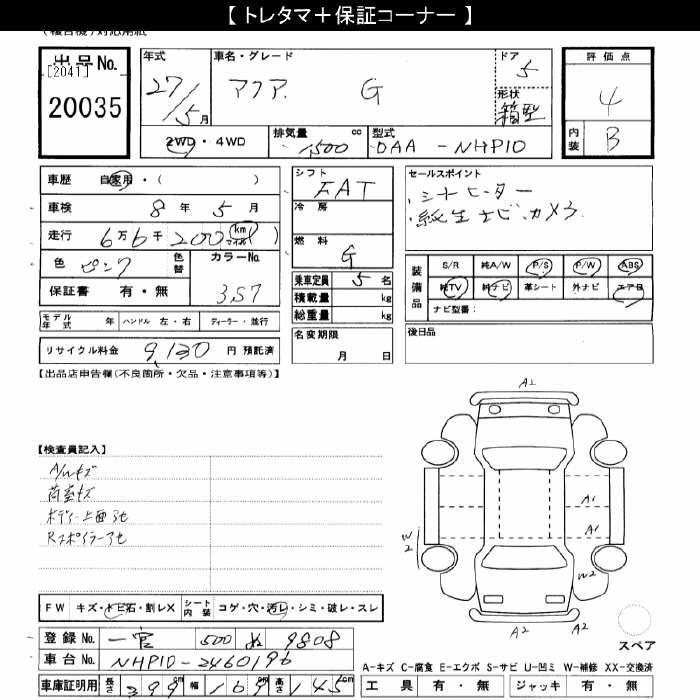 【 トレタマ＋保証コーナー 】
出品No.
[2041]
20035
年式
27/5月
車名・グレード
アクア G
ドア
5
形状
箱型
評価点
4
内装 B
2WD・4WD
排気量 1,500 cc
型式 DAA-NHP10
車歴 自家用・( )
車検 8年 5月
走行 6万6千200 km マイル
色 ピンク 色替
カラーNo. 3S7
保証書 有・無
モデル年式 年 ハンドル 左・右 ディーラー・並行
リサイクル料金 9,130 円 預託済
シフト FAT
冷房
燃料 G
乗車定員 5 名
積載量 kg
総重量 kg
名変期限
月 日
セールスポイント
・シートヒーター
・純正ナビ.カメラ
装備品
S/R 純A/W P/S P/W ABS
純TV 純ナビ 革シート 外ナビ エアB
ナビ型番：
後日品
【出品店申告欄(不良箇所・欠品・注意事項等)】
【検査員記入】
A/Wキズ
荷室キズ
ボディー上面アセ
Rスポイラーアセ
A2
A1
A1
W2
W2
A2
A2
スペア
FW キズ・トビ石・割レX シート内装 コゲ・穴・汚レ・シミ・破レ・スレ
登録No. 一宮 500 ぬ 9808
車台No. NHP10-2460196
車庫証明用 長さ 399cm 幅 169cm 高さ 145cm
A-キズ C-腐食 E-エクボ S-サビ U-凹ミ W-補修 XX-交換済
工具 有・無 ジャッキ 有・無